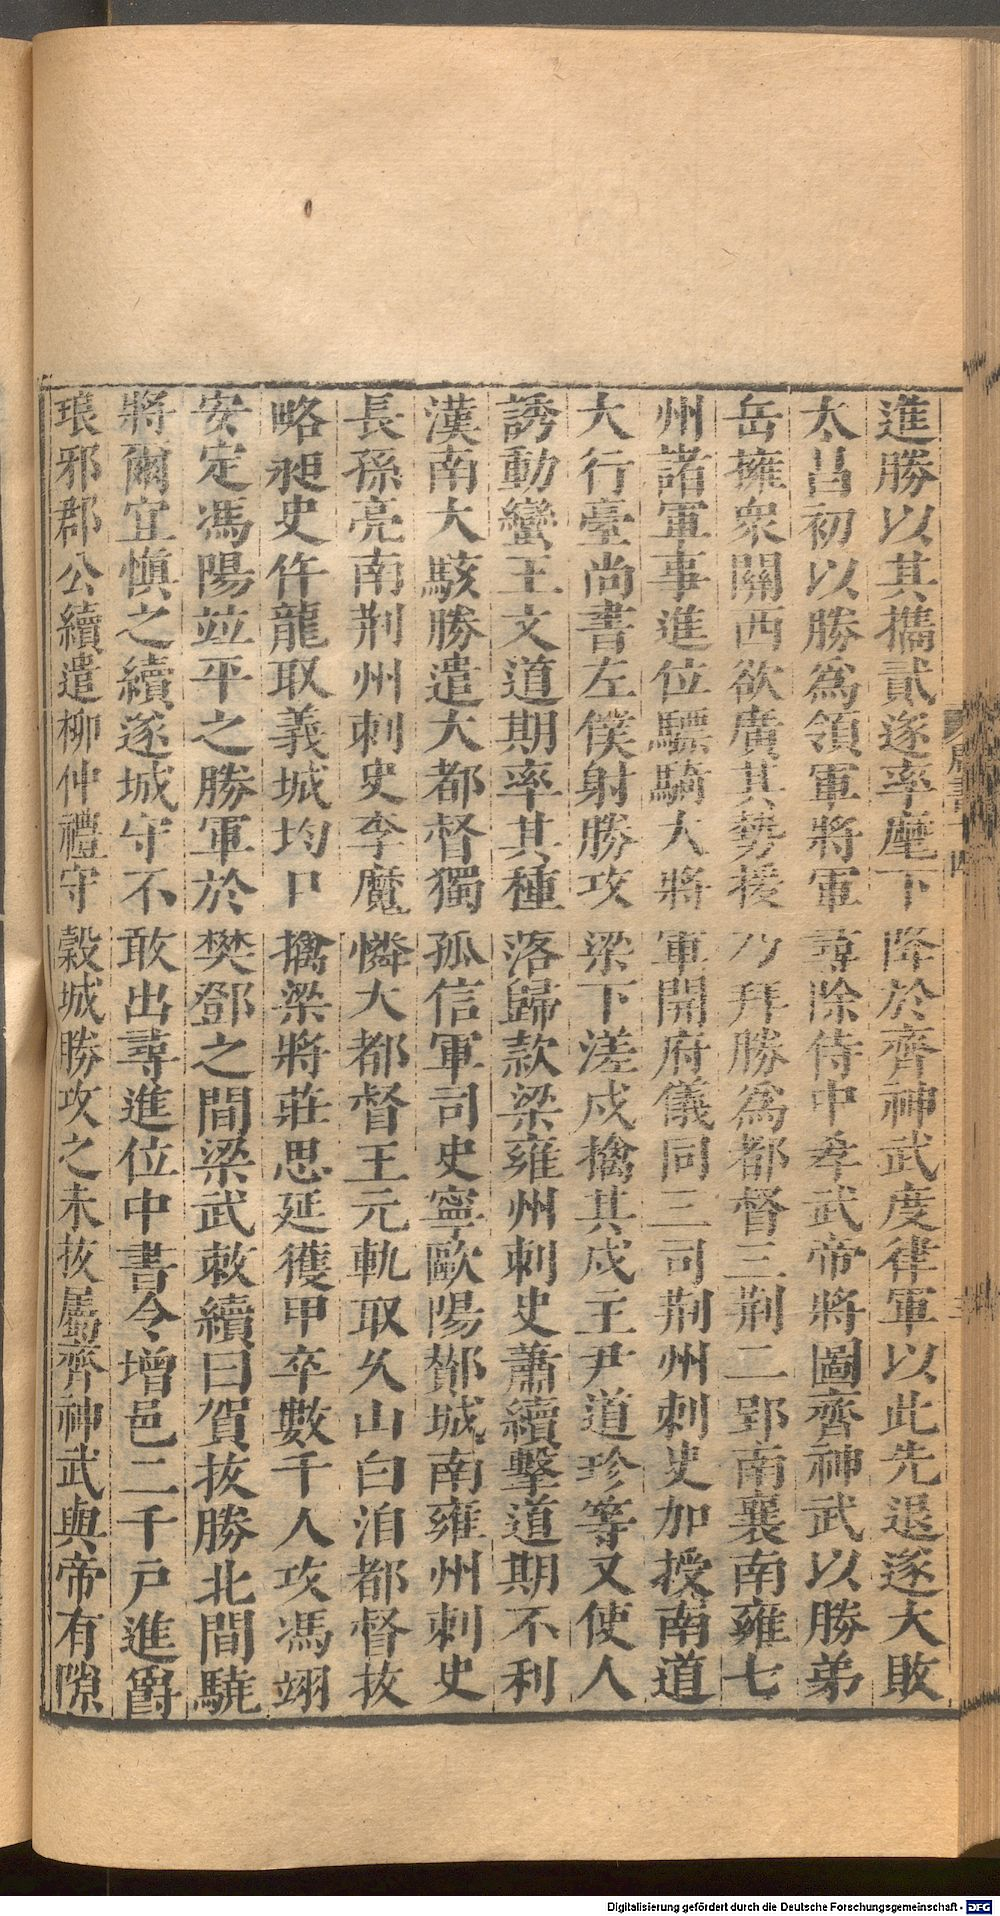 進勝以其攜貳遂率麾下降於齊神武度律軍以此先退遂大敗
太昌初以勝爲領軍將軍尋除侍中孝武帝將圖齊神武以勝弟
岳擁衆關西欲廣其勢援乃拜勝爲都督三荆二郢南襄南雍七
州諸軍事進位驃騎大將軍開府儀同三司荆州刺史加授南道
大行臺尚書左僕射勝攻梁下溠戍擒其戍主尹道珍等又使人
誘動蠻王文道期率其種落歸款梁雍州刺史蕭續擊道期不利
漢南大駭勝遣大都督獨孤信軍司史寧歐陽酇城南雍州刺史
長孫亮南荆州刺史李魔憐大都督王元軌取久山白洎都督拔
略昶史仵龍取義城均口擒梁將莊思延獲甲卒數千人攻馮翊
安定馮陽竝平之勝軍於樊鄧之間梁武敕續曰賀拔勝北間驍
將爾宜慎之續遂城守不敢出尋進位中書令增邑二千戸進爵
琅邪郡公續遣柳仲禮守穀城勝攻之未拔屬齊神武與帝有隙
周書十四
Digitalisierung gefördert durch die Deutsche Forschungsgemeinschaft - DFG